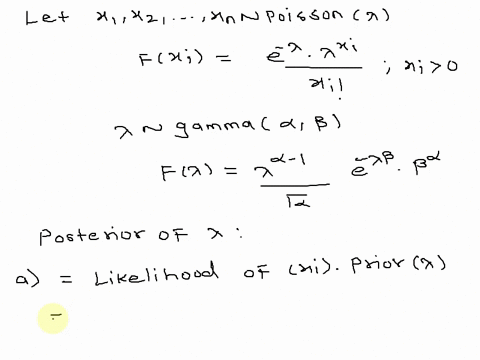 Let x₁, x₂, ..., xₙ ~ Poisson (λ)
F(xi) = e^-λ · λ^xi / xi! ; xi > 0
λ ~ gamma (α, β)
F(λ) = λ^α-1 / Γα e^-λβ · β^α
Posterior of λ :
a) = Likelihood of (xi) · Prior (λ)
=